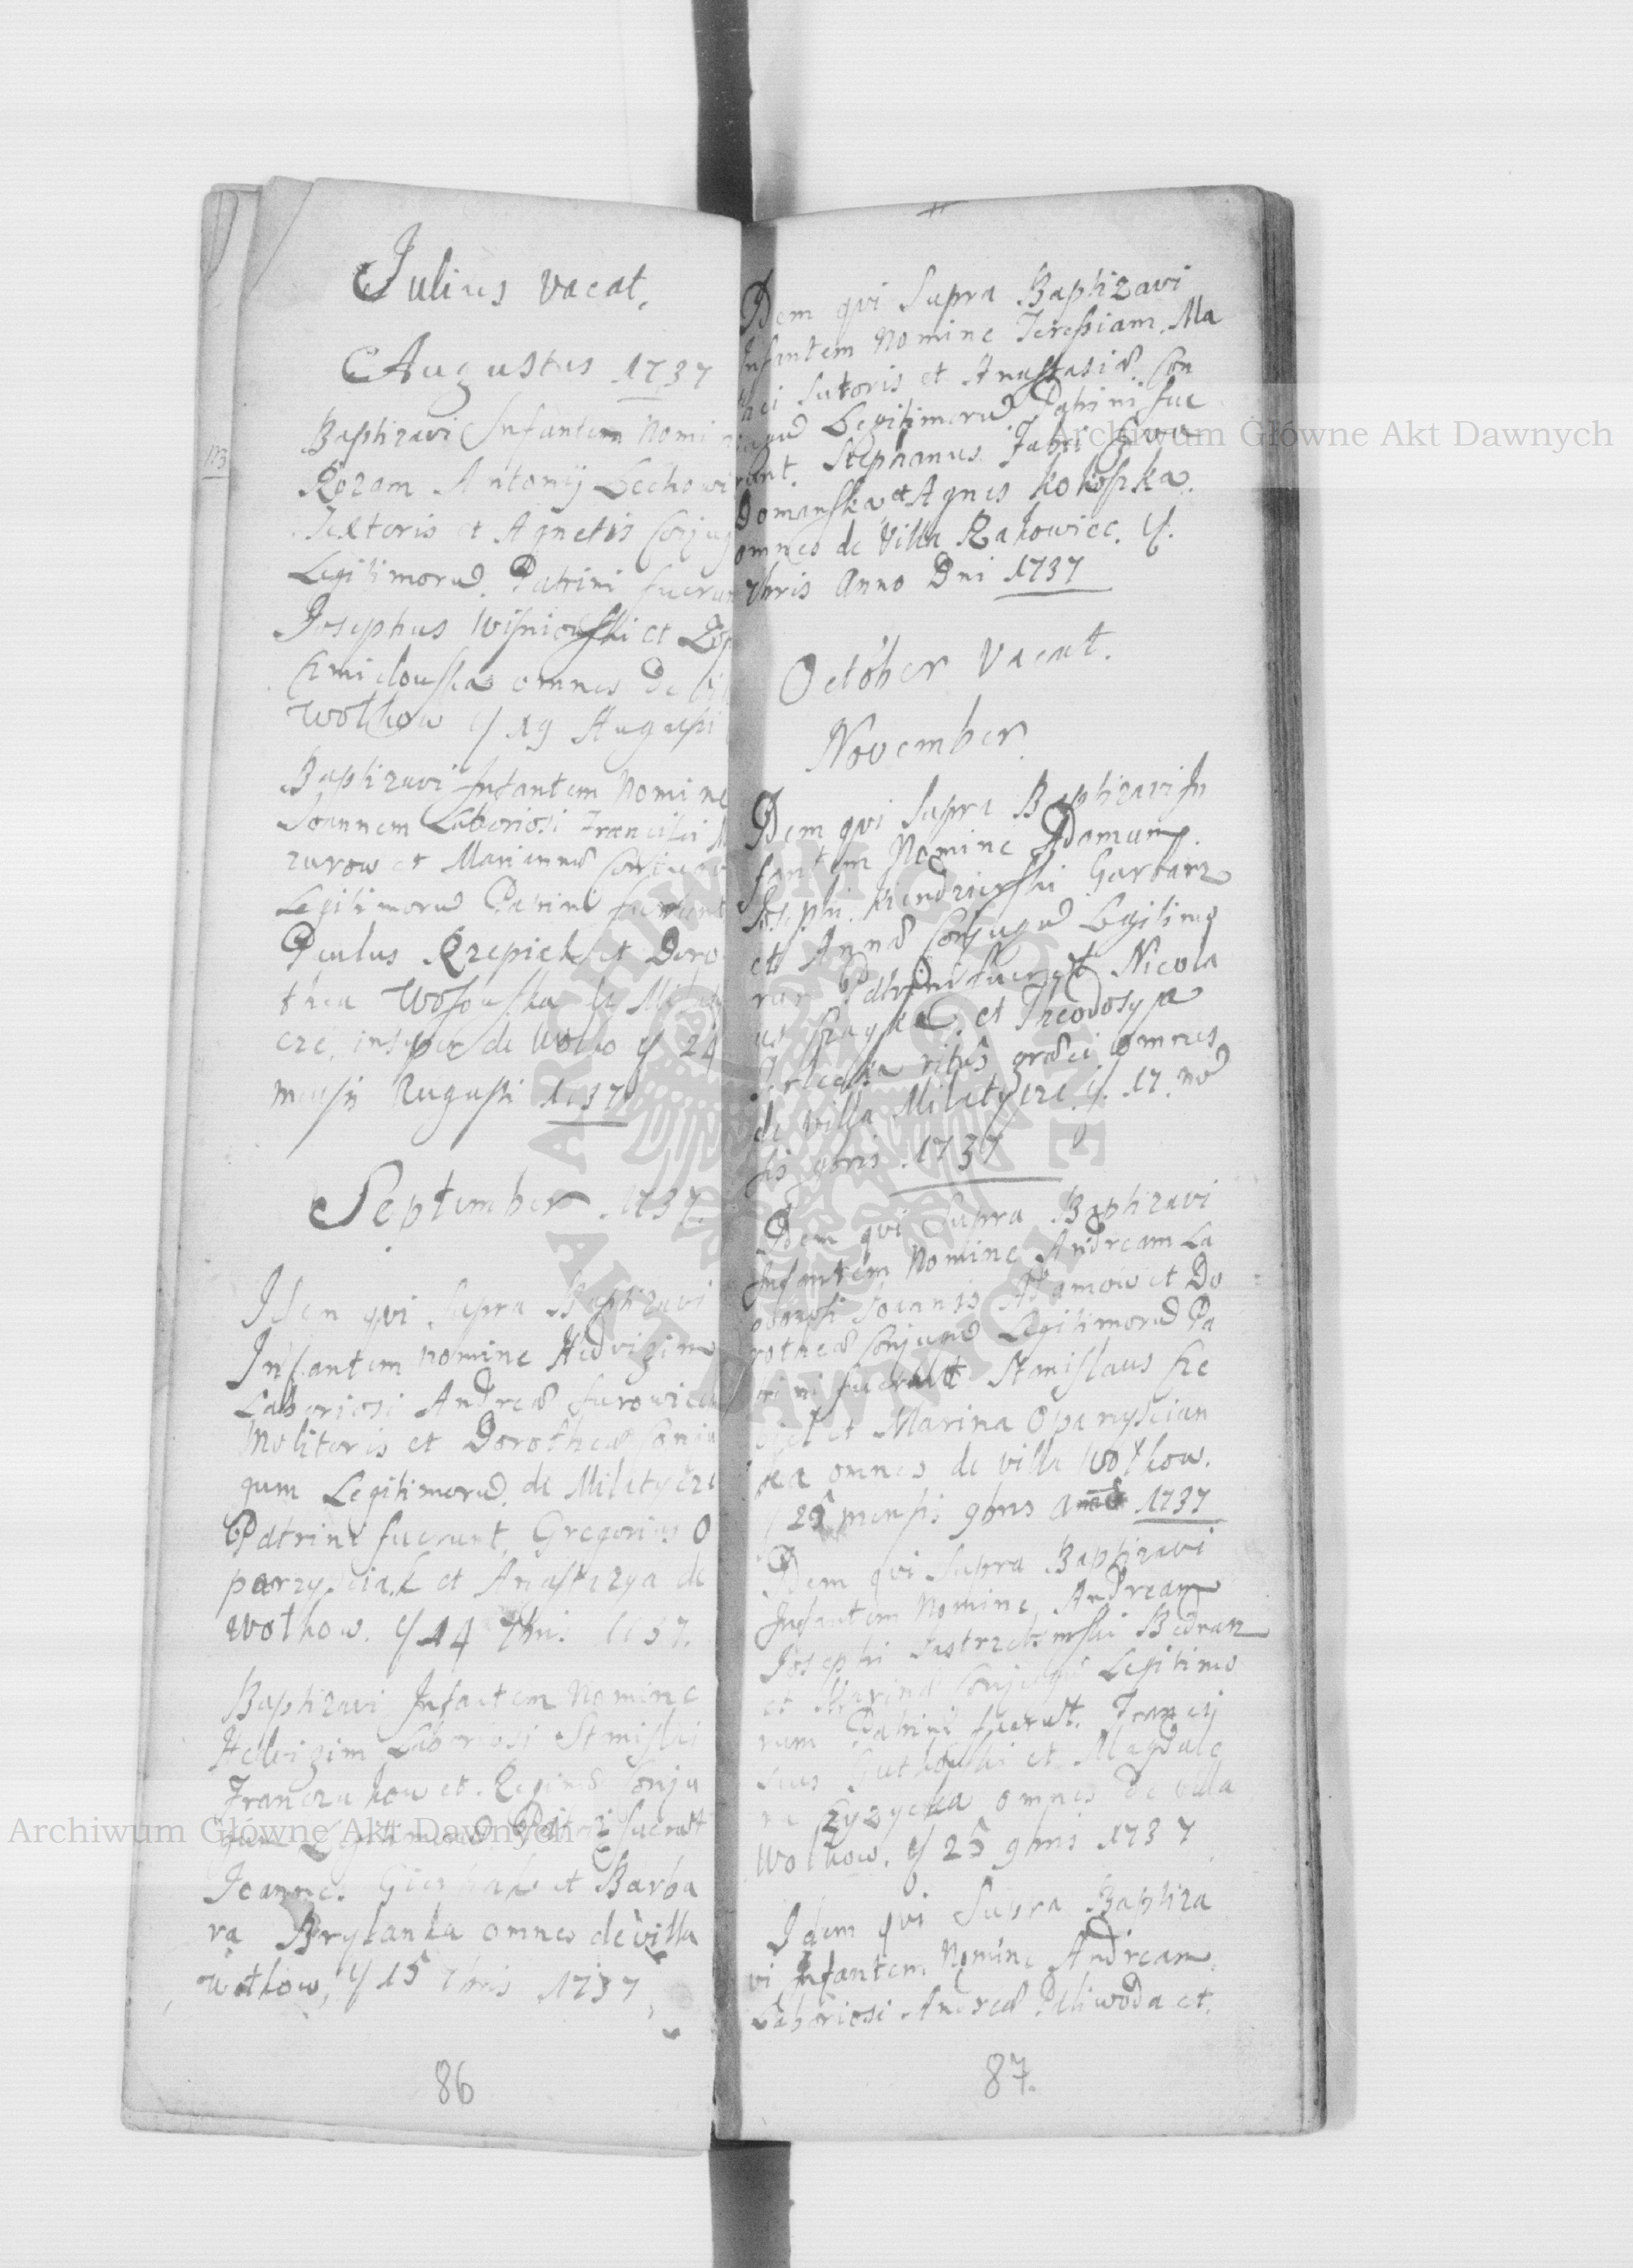 Julius vacat.
Augustus 1737
Baptizavi Infantem Nomi
Rozam Antonij Lechowi
Textoris et Agnetis Conjug
Legitimorũ. Patrini fuerun
Josephus Wisniowski et
Chmielouska omnes De
Wołkow 19 Augusti
Baptizavi Infantem Nomine
Joannem Laboriosi Francisci
zurow et Mariannæ Coniugu
Legitimorũ Patrini fuerunt
Paulus Krzepick et Doro
thea Wosouska de Milat
cze, insuper de Wołko 24
mensis Augusti 1737
September. 1737.
Idem qui Supra Baptizavi
Infantem nomine Hedvigim
Laboriosi Andreæ Surowicz
Molitoris et Dorotheæ Conju
gum Legitimorũ. de Milatÿcze
Patrini fuerunt, Gregorius O
parzysciak et Anastazya de
Wołkow. 14 7bris 1737.
Baptizavi Infantem Nomine
Hedvigim Laboriosi Stanislai
Franczukow et Reginæ Conju
gum Legitimorũ Patrini fuerũt
Joannes et Barba
ra Brylanka omnes de villa
Wołkow, 15 7bris 1737
86
Idem qui Supra Baptizavi
Infantem Nomine Teressiam. Ma
Sutoris et Anastasiæ Con
Legitimorũ Patrini fue
runt. Stephanus
Domanska et Agnes Kokoszka.
omnes de Villa Rakowiec.
7bris Anno Dni 1737
October vacat.
November
Idem qui Supra Baptizavi In
fantem Nomine Adamum
Josephi Kendzierski Garbarz
et Annæ Conjugũ Legitimo
rum Patrini fuerũt Nicola
us et Theodosya
ritûs græci omnes
de villa Milatÿcze. 17. mẽ
sis 9bris. 1737
Idem qui Supra Baptizavi
Infantem Nomine Andream La
boriosi Joannis Adamow et Do
rotheæ Conjugũ Legitimorũ Pa
trini fuerũt Stanislaus
et Marina Oparyscian
ka omnes de villa Wołkow.
25 mensis 9bris 1737
Idem qui Supra Baptizavi
Infantem Nomine Andream
Josephi Jastrzebski Bednarz
et Marinæ Conjugũ Legitimo
rum Patrini fuerũt. Francis
cus Gutkowski et Magdale
na Czyzycka omnes de villa
Wołkow. 25 9bris 1737
Idem qui Supra Baptiza
vi Infantem Nomine Andream.
Laboriosi Andreæ Paliwoda et.
87.
Archiwum Główne Akt Dawnych
Archiwum Główne Akt Dawnych
ARCHIWUM GŁÓWNE AKT DAWNYCH